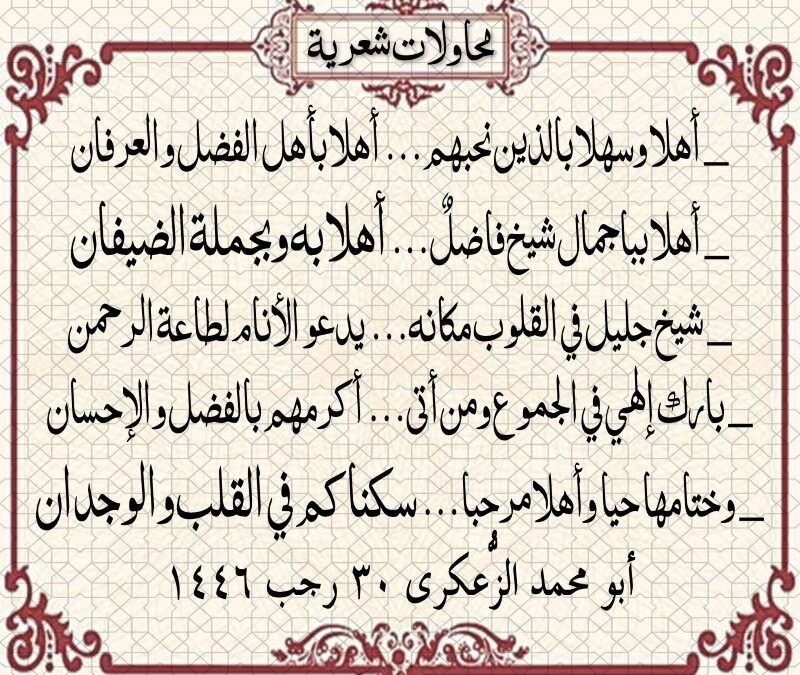 محاولات شعرية
_ أهلا وسهلا بالذين نحبهم... أهلا بأهل الفضل والعرفان
_ أهلا بباجمال شيخ فاضلٌ... أهلا به وبجملة الضيفان
_ شيخ جليل في القلوب مكانه... يدعو الأنام لطاعة الرحمن
_ بارك إلهي في الجموع ومن أتى... أكرمهم بالفضل والإحسان
_ وختامها حيا وأهلا مرحبا... سكناكم في القلب والوجدان
أبو محمد الزُّعكرى ٣٠ رجب ١٤٤٦